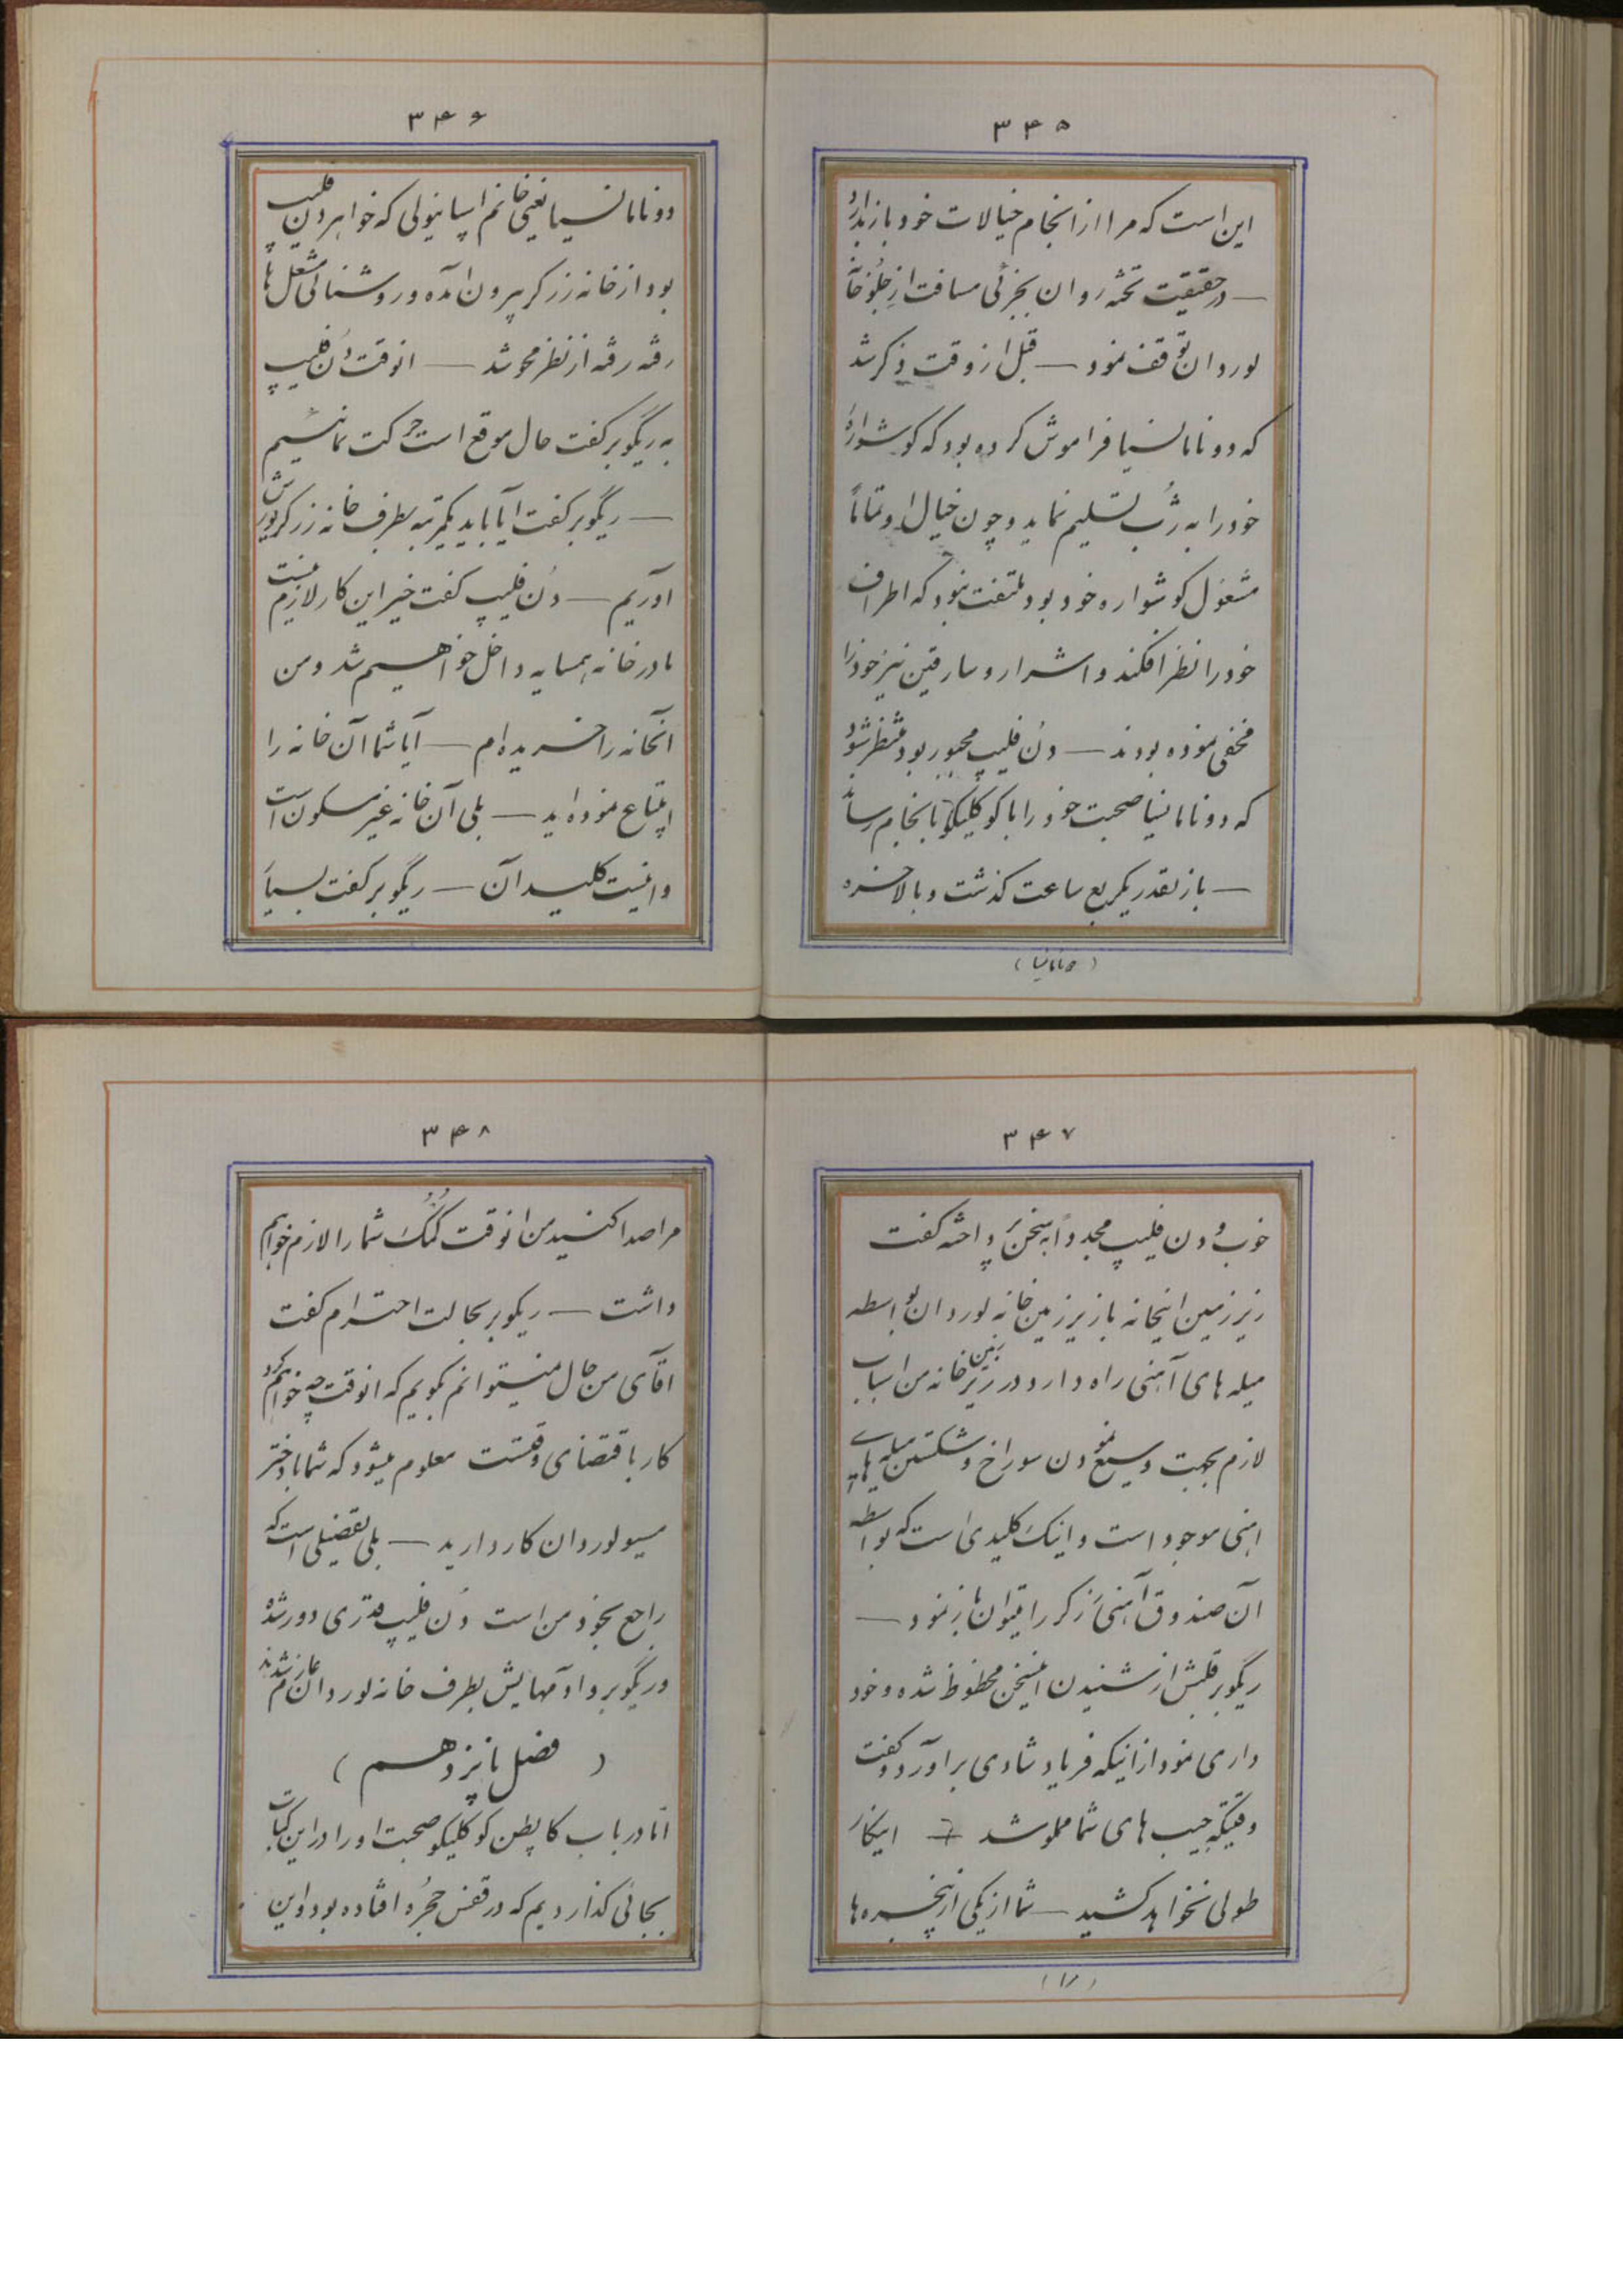 ۳۴۵
این است که مرا از انجام خیالات خود باز بدارد
— درحقیقت تخته روان بجزئی مسافت از جلوخان
لوردان توقف نمود — قبل از وقت ذکر شد
که دونا مانسیا فراموش کرده بود که گوشواره
خود را به رُب تسلیم نماید و چون خیال او تماماً
مشغول گوشواره خود بود ملتفت نبود که اطراف
خود را نظر افکند و اشرار و سارقین نیز خود را
مخفی نموده بودند — دُن فلیپ مجبور بود منتظر شود
که دونا مانسیا صحبت خود را با کوکلیکو بانجام رساند
— باز بقدر یکربع ساعت گذشت و بالاخره
(دونامانسیا)
۳۴۶
دونا مانسیا یعنی خانم اسپانیولی که خواهر دون فلیپ
بود از خانه زرگر بیرون آمده و روشنائی مشعل ها
رفته رفته از نظر محو شد — انوقت دُن فلیپ
به ریگوبر گفت حال موقع است حرکت نمائیم
— ریگوبر گفت ایا باید یکمرتبه بطرف خانه زرگر یورش
آوریم — دُن فلیپ گفت خیر این کار لازم نیست
ما در خانه همسایه داخل خواهیم شد و من
آنخانه را خریده ام — آیا شما آن خانه را
ابتیاع نموده اید — بلی آن خانه غیر مسکون است
و اینست کلید آن — ریگوبر گفت بسیار
۳۴۷
خوب و دن فلیپ مجدداً به سخن پرداخته گفت
زیر زمین اینخانه با زیر زمین خانه لوردان بواسطه
میله های آهنی راه دارد و در زیر زمین خانه من اسباب
لازم بجهت وسیع نمودن سوراخ و شکستن میله های
اهنی موجود است و اینک کلیدی است که بواسطه
آن صندوق آهنی زرگر را میتوان باز نمود —
ریگوبر قلبش از شنیدن اینسخن محظوظ شده و خود
داری نمود از اینکه فریاد شادی بر آورد و گفت
وقتیکه جیب های شما مملو شد — اینکار
طولی نخواهد کشید — شما از یکی از پنجره ها
(مرا)
۳۴۸
مرا صدا کنید من انوقت کمک شما را لازم خواهم
داشت — ریکوبر بحالت احترام گفت
اقای من حال نمیتوانم بگویم که انوقت چه خواهم کرد
کار باقتضای وقتست معلوم میشود که شما با دختر
مسیو لوردان کار دارید — بلی تفضیلی است که
راجع بخود من است دُن فلیپ قدری دور شد
و ریگوبر و ادمهایش بطرف خانه لوردان عازم شدند
( فصل پانزدهم )
امّا در باب کاپطن کوکلیکو صحبت او را در این کتاب
بجائی گذاردیم که در قفس حجره افتاده بود و این